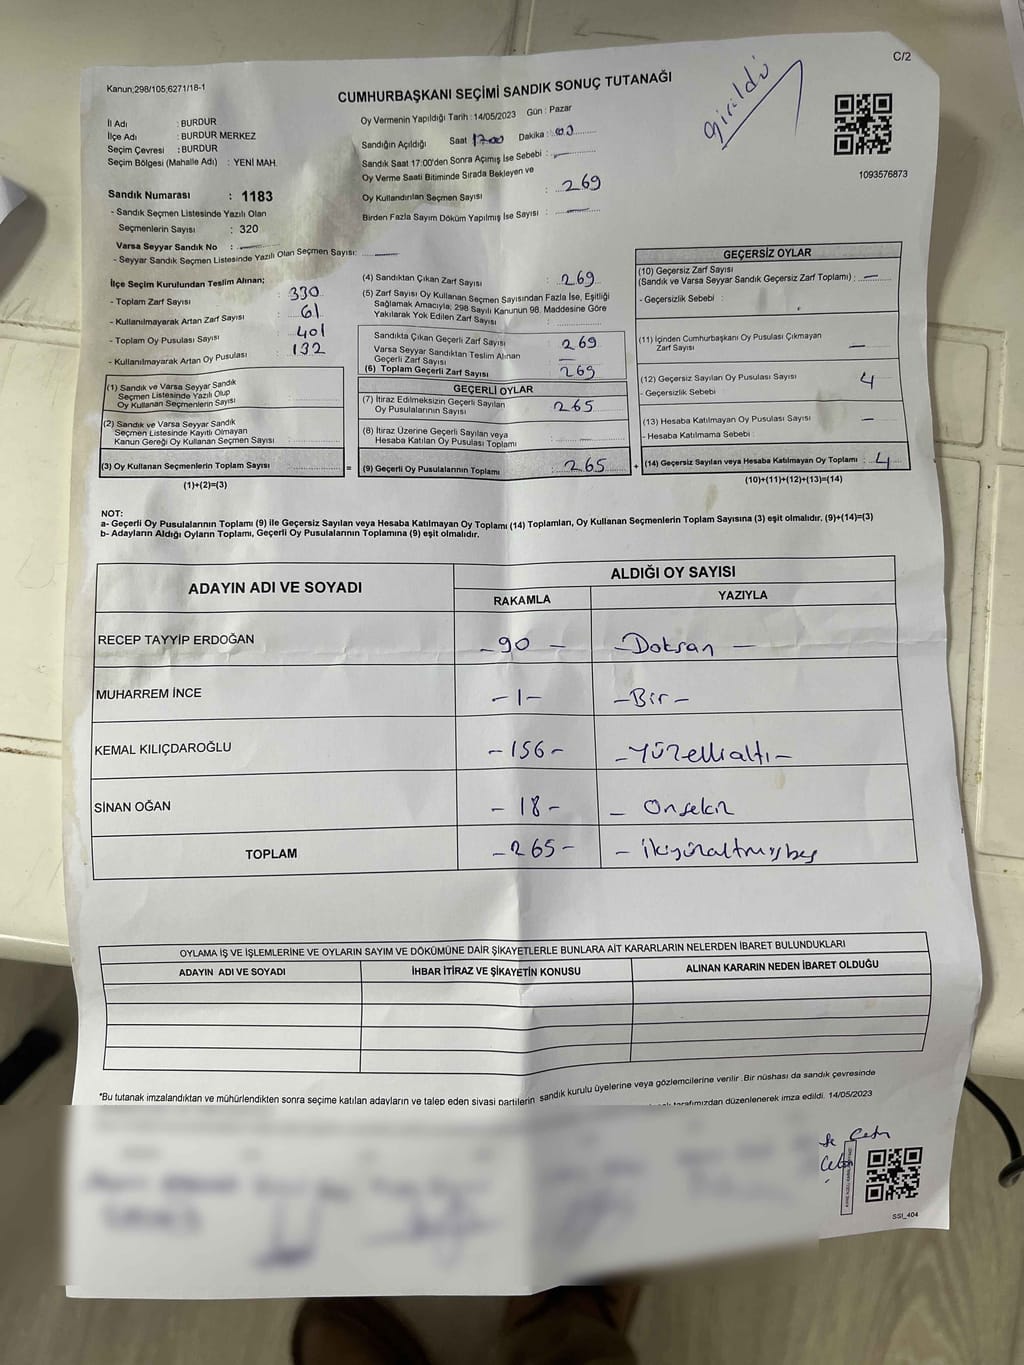 C/2
Kanun;298/105,6271/18-1
CUMHURBAŞKANI SEÇİMİ SANDIK SONUÇ TUTANAĞI
girildi
1093576873
İl Adı : BURDUR
İlçe Adı : BURDUR MERKEZ
Seçim Çevresi : BURDUR
Seçim Bölgesi (Mahalle Adı) : YENİ MAH.
Sandık Numarası : 1183
- Sandık Seçmen Listesinde Yazılı Olan
Seçmenlerin Sayısı : 320
Varsa Seyyar Sandık No :
- Seyyar Sandık Seçmen Listesinde Yazılı Olan Seçmen Sayısı:
Oy Vermenin Yapıldığı Tarih : 14/05/2023 Gün : Pazar
Sandığın Açıldığı Saat 17:00 Dakika : 00
Sandık Saat 17:00'den Sonra Açımış İse Sebebi :
Oy Verme Saati Bitiminde Sırada Bekleyen ve
Oy Kullandırılan Seçmen Sayısı : 269
Birden Fazla Sayım Döküm Yapılmış İse Sayısı :
İlçe Seçim Kurulundan Teslim Alınan;
- Toplam Zarf Sayısı : 330
- Kullanılmayarak Artan Zarf Sayısı : 61
- Toplam Oy Pusulası Sayısı : 401
- Kullanılmayarak Artan Oy Pusulası : 132
(1) Sandık ve Varsa Seyyar Sandık
Seçmen Listesinde Yazılı Olup
Oy Kullanan Seçmenlerin Sayısı :
(2) Sandık ve Varsa Seyyar Sandık
Seçmen Listesinde Kayıtlı Olmayan
Kanun Gereği Oy Kullanan Seçmen Sayısı :
(3) Oy Kullanan Seçmenlerin Toplam Sayısı :
(1)+(2)=(3)
(4) Sandıktan Çıkan Zarf Sayısı : 269
(5) Zarf Sayısı Oy Kullanan Seçmen Sayısından Fazla İse, Eşitliği
Sağlamak Amacıyla; 298 Sayılı Kanunun 98. Maddesine Göre
Yakılarak Yok Edilen Zarf Sayısı :
Sandıkta Çıkan Geçerli Zarf Sayısı : 269
Varsa Seyyar Sandıktan Teslim Alınan
Geçerli Zarf Sayısı
(6) Toplam Geçerli Zarf Sayısı : 269
GEÇERLİ OYLAR
(7) İtiraz Edilmeksizin Geçerli Sayılan
Oy Pusulalarının Sayısı : 265
(8) İtiraz Üzerine Geçerli Sayılan veya
Hesaba Katılan Oy Pusulası Toplamı :
= (9) Geçerli Oy Pusulalarının Toplamı : 265 +
GEÇERSİZ OYLAR
(10) Geçersiz Zarf Sayısı
(Sandık ve Varsa Seyyar Sandık Geçersiz Zarf Toplamı) :
- Geçersizlik Sebebi :
(11) İçinden Cumhurbaşkanı Oy Pusulası Çıkmayan
Zarf Sayısı
(12) Geçersiz Sayılan Oy Pusulası Sayısı : 4
- Geçersizlik Sebebi :
(13) Hesaba Katılmayan Oy Pusulası Sayısı :
- Hesaba Katılmama Sebebi :
(14) Geçersiz Sayılan veya Hesaba Katılmayan Oy Toplamı : 4
(10)+(11)+(12)+(13)=(14)
NOT:
a- Geçerli Oy Pusulalarının Toplamı (9) ile Geçersiz Sayılan veya Hesaba Katılmayan Oy Toplamı (14) Toplamları, Oy Kullanan Seçmenlerin Toplam Sayısına (3) eşit olmalıdır. (9)+(14)=(3)
b- Adayların Aldığı Oyların Toplamı, Geçerli Oy Pusulalarının Toplamına (9) eşit olmalıdır.
ADAYIN ADI VE SOYADI ALDIĞI OY SAYISI
RAKAMLA YAZIYLA
RECEP TAYYİP ERDOĞAN - 90 - - Doksan -
MUHARREM İNCE - 1 - - Bir -
KEMAL KILIÇDAROĞLU - 156 - - Yüzellialtı -
SİNAN OĞAN - 18 - - Onsekiz
TOPLAM - 265 - - ikiyüzaltmışbeş
OYLAMA İŞ VE İŞLEMLERİNE VE OYLARIN SAYIM VE DÖKÜMÜNE DAİR ŞİKAYETLERLE BUNLARA AİT KARARLARIN NELERDEN İBARET BULUNDUKLARI
ADAYIN ADI VE SOYADI İHBAR İTİRAZ VE ŞİKAYETİN KONUSU ALINAN KARARIN NEDEN İBARET OLDUĞU
*Bu tutanak imzalandıktan ve mühürlendikten sonra seçime katılan adayların ve talep eden siyasi partilerin sandık kurulu üyelerine veya gözlemcilerine verilir. Bir nüshası da sandık çevresinde
tarafımızdan düzenlenerek imza edildi. 14/05/2023
SSI_404